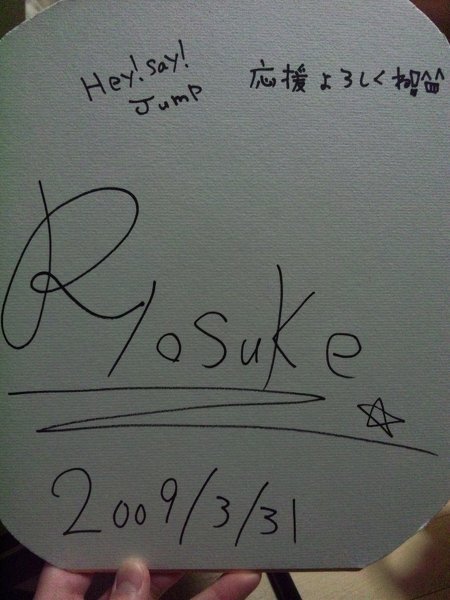 Hey! Say! 応援よろしくね!!^^
Jump
Ryosuke
2009/3/31